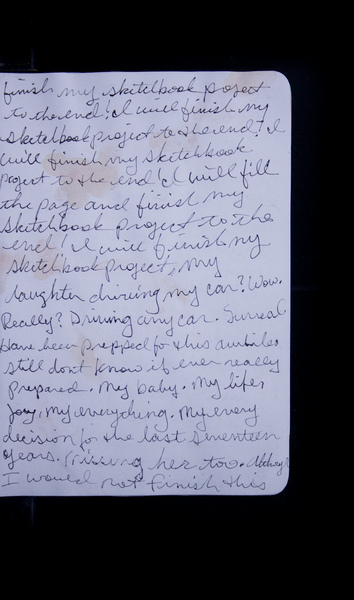 finish my sketchbook project
to the end! I will finish my
sketchbook project to the end! I
will finish my sketchbook
project to the end! I will fill
the page and finish my
sketchbook project to the
end! I will finish my
sketchbook project, my
daughter driving my car? Wow.
Really? Driving my car. Surreal.
Have been prepped for this awhile
still don't know if ever really
prepared. My baby. My lifes
joy, my everything. My every
decision for the last seventeen
years. her too.
I would not finish this